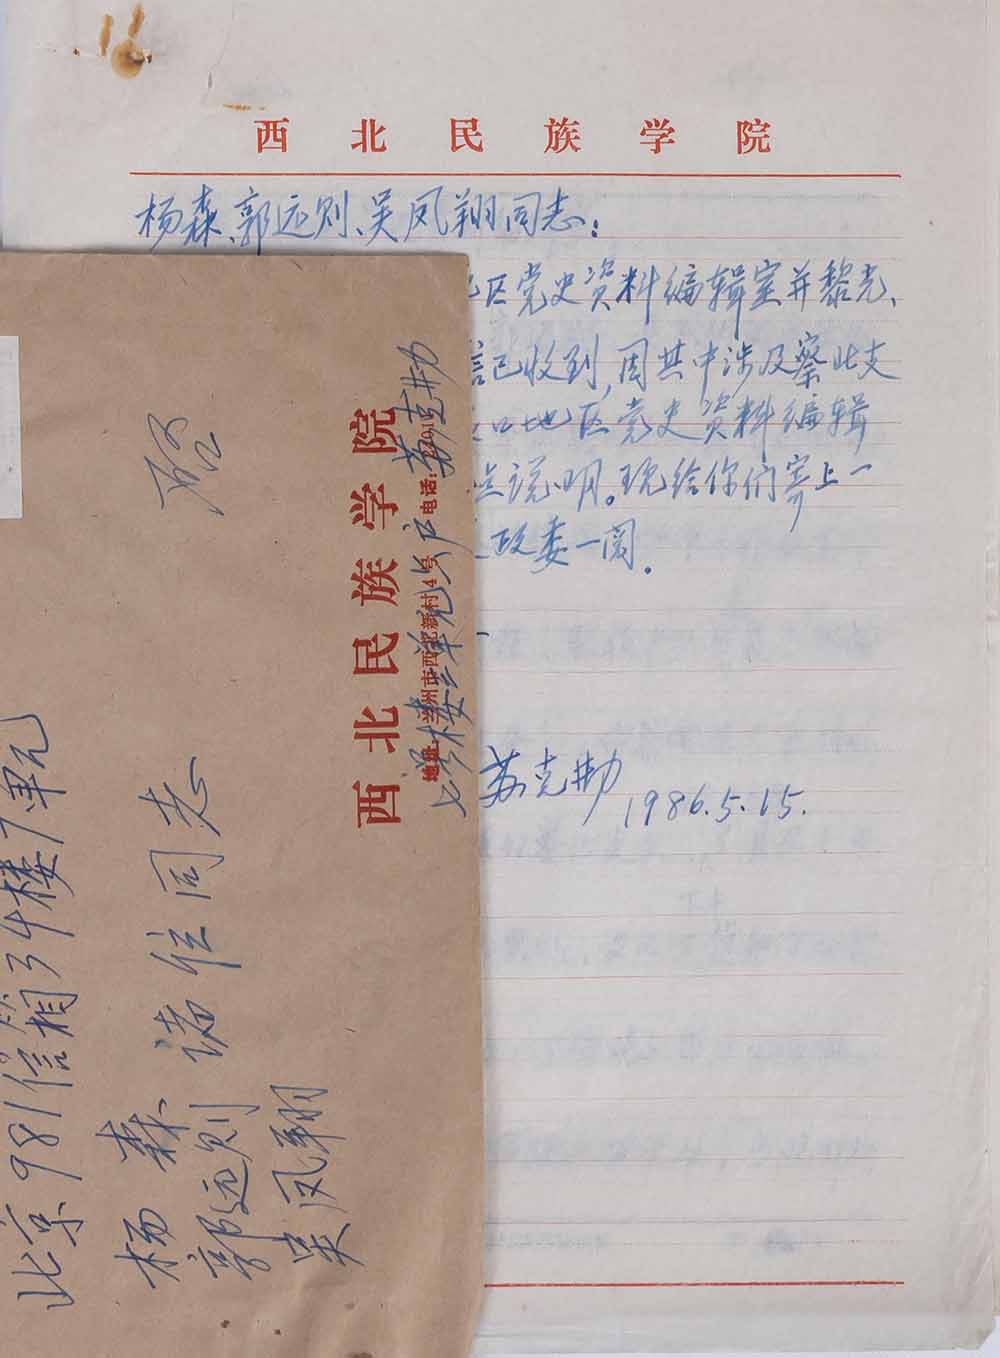 西北民族学院
杨森、郭远则、吴凤翔同志：
区党史资料编辑室并黎光、
信已收到，因其中涉及察北支
口地区党史资料编辑
点说明。现给你们寄上一
政委一阅。
苏克勤
1986.5.15.
北京981信箱34楼7单元
杨森
郭远则
吴凤翔
诸位同志
启
西北民族学院
地址：兰州市西北新村4号 电话：
七号楼三单元 苏克勤